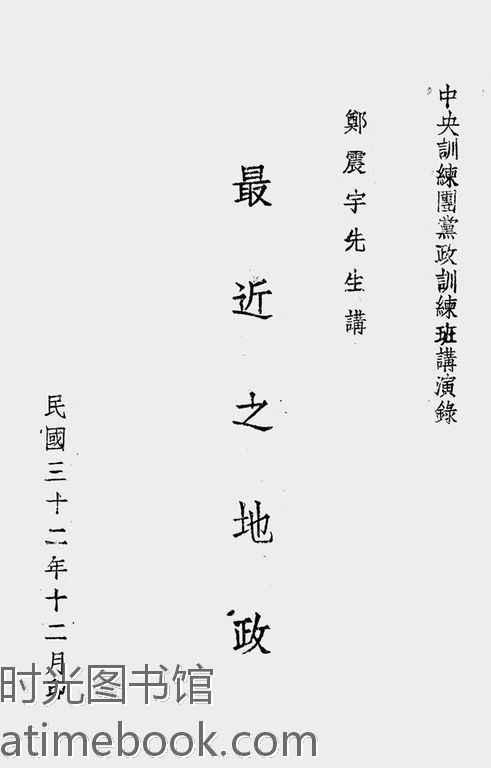 中央訓練團黨政訓練班講演錄
鄭震宇先生講
最近之地政
民國三十二年十二月印
时光图书馆
atimebook.com